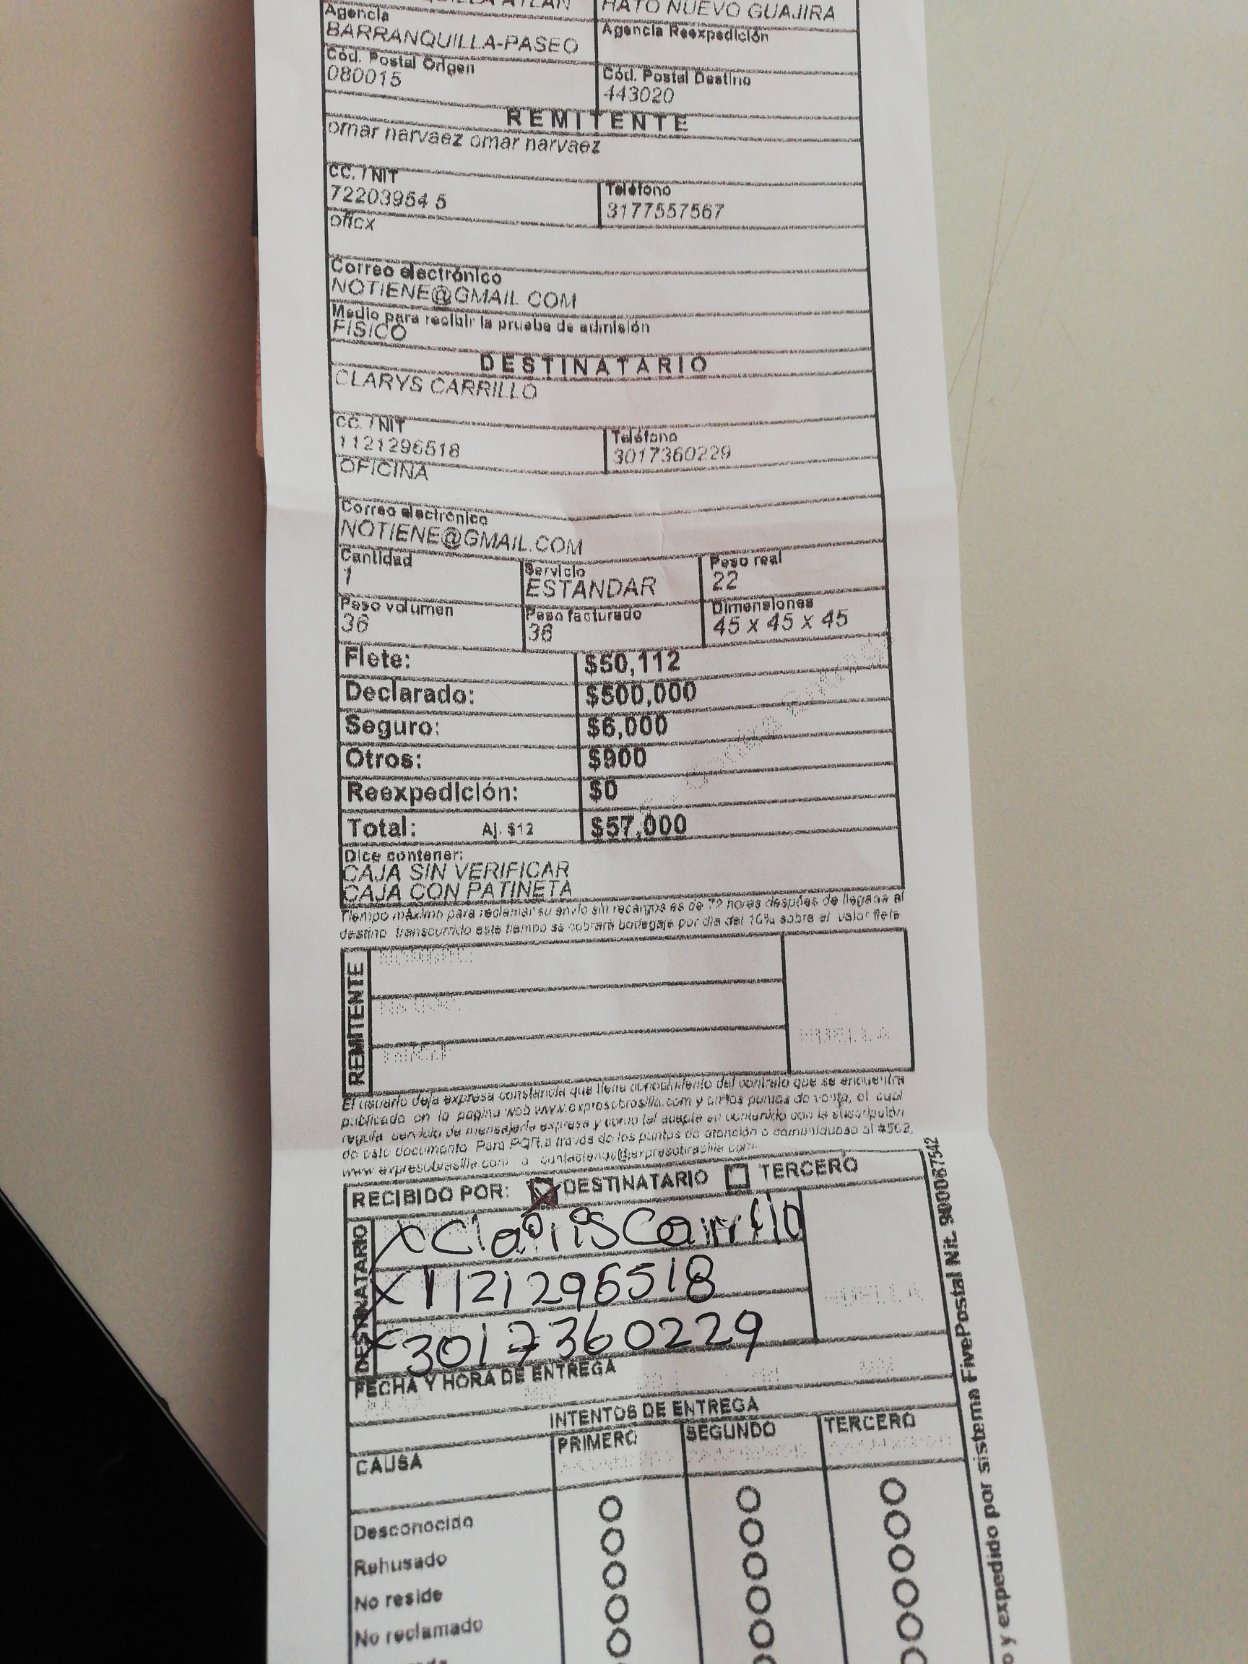 HATO NUEVO GUAJIRA
Agencia
BARRANQUILLA-PASEO
Agencia Reexpedición
Cód. Postal Origen
080015
Cód. Postal Destino
443020
REMITENTE
omar narvaez omar narvaez
CC. / NIT
72203954 5
Teléfono
3177557567
oficx
Correo electrónico
NOTIENE@GMAIL.COM
Medio para recibir la prueba de admisión
FISICO
DESTINATARIO
CLARYS CARRILLO
CC. / NIT
1121296518
Teléfono
3017360229
OFICINA
Correo electrónico
NOTIENE@GMAIL.COM
Cantidad
1
Servicio
ESTANDAR
Peso real
22
Peso volumen
36
Peso facturado
36
Dimensiones
45 x 45 x 45
Flete: $50,112
Declarado: $500,000
Seguro: $6,000
Otros: $900
Reexpedición: $0
Total: Aj. $12 $57,000
Dice contener:
CAJA SIN VERIFICAR
CAJA CON PATINETA
Tiempo máximo para reclamar su envío sin recargos es de 72 horas despúes de llegada al
destino transcurrido este tiempo se cobrará bodegaje por día del 10% sobre el valor flete
REMITENTE
HUELLA
El usuario deja expresa constancia que tiene conocimiento del contrato que se encuentra
publicado en la pagina web www.expresobrasilia.com y en los puntos de venta, el cual
regula servicio de mensajería expresa y como tal acepta su contenido con la suscripción
de este documento. Para PQR a través de los puntos de atención o comuniquese al #502,
www.expresobrasilia.com o contactenos@expresobrasilia.com
RECIBIDO POR: DESTINATARIO TERCERO
DESTINATARIO
X Clariis Carrillo
X 1121296518
X 3017360229
HUELLA
FECHA Y HORA DE ENTREGA
INTENTOS DE ENTREGA
CAUSA
PRIMERO
SEGUNDO
TERCERO
Desconocido
Rehusado
No reside
No reclamado
o y expedido por sistema FivePostal Nit. 900087542